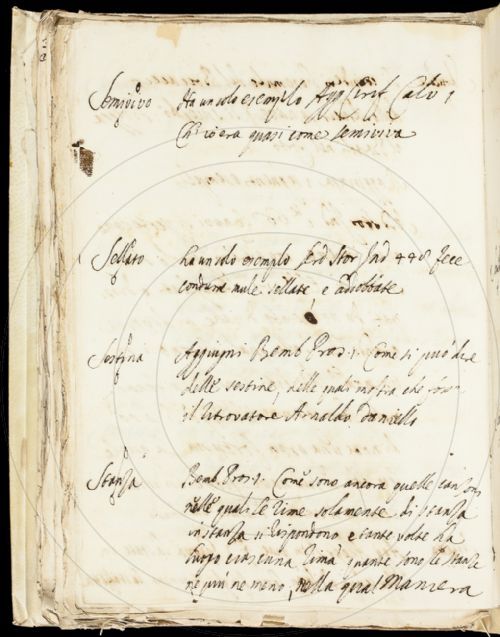 Semivivo Ha un solo esempio Agg Cirif. Calv. 1
Ch' io era quasi come semiviva
Sellato ha un solo esempio Serd Stor Ind 448 fece
condurre mule sellate e addobbate
Sestina Aggiugni Bemb Pros. 1. Come si può dire
delle sestine, delle quali mostra che fosse
il ritrovatore Arnaldo Daniello
Stanza Bemb. Pros. 1. Come sono ancora quelle canzoni
nelle quali le rime solamente di stanza
in stanza si rispondono e tante volte ha
luogo ciascuna rima, quante sono le stanze
nè più ne meno, nella qual maniera